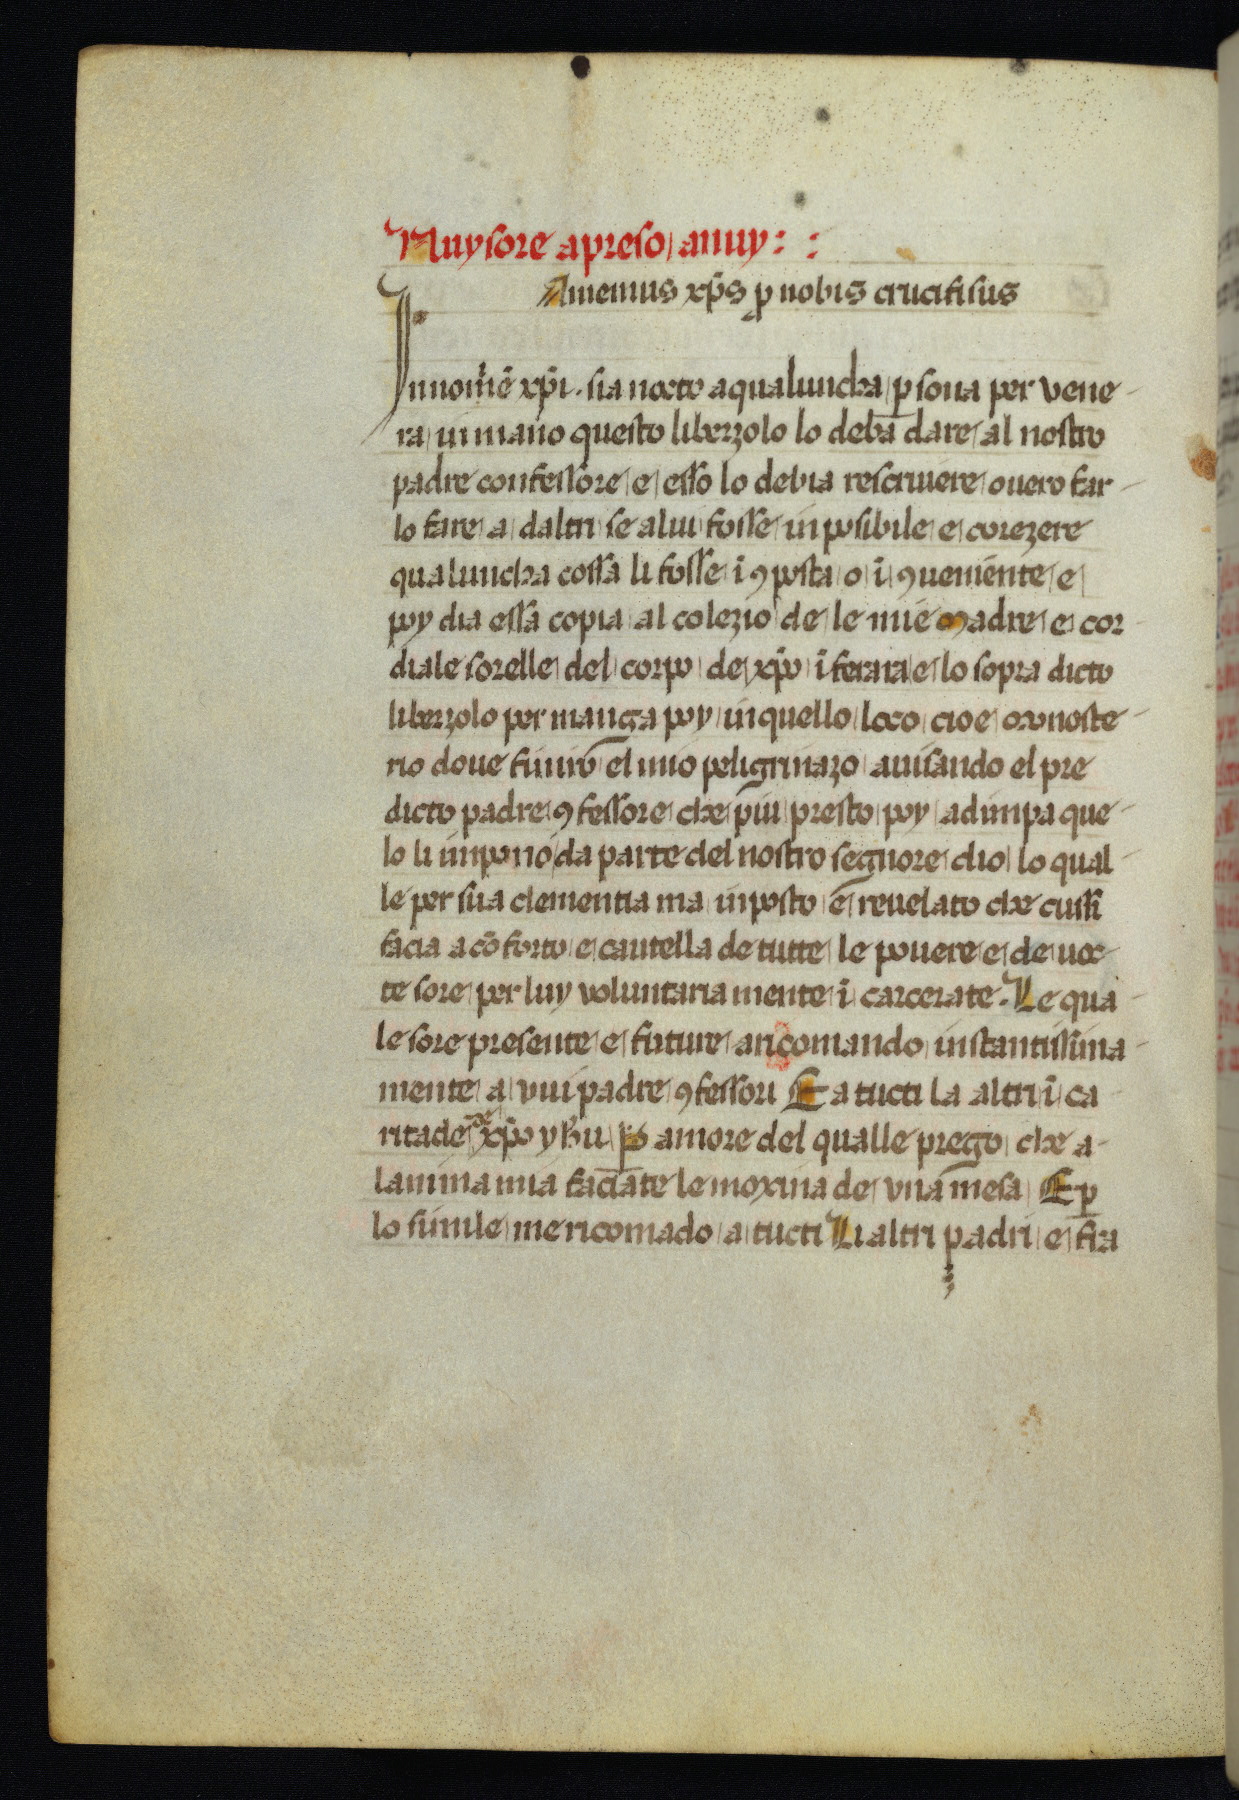 Nuy sore apreso anuy : :
Amemus xp̄s ꝓ nobis crucifisus
In nomē xp̄i · sia nocto a qualuncha ꝑsona per vene-
ra in mano questo liberzolo lo debā dare al nostro
padre confessore e esso lo debia rescriuere ouero far-
lo fare a daltri se a lui fosse inposibile e corezere
qualuncha cossa li fosse ī ꝯposta o ī ꝯueniente e
poy dia essa copia al colezio de le mie madre e cor-
diale sorelle del corpo de xp̄o ī ferara e lo sopra dicto
liberzolo permanga poy in quello loco cioe monoste-
rio doue finirō el mio peligrinazo auisando el pre
dicto padre ꝯfessore che piu presto poy adinpa que-
lo li inpono da parte del nostro segnore dio lo qual-
le per sua clementia ma inposto e reuelato che cussi
facia a cōforto e cautella de tutte le pouere e deuoc-
te sore per luy voluntaria mente ī carcerate. Le qua-
le sore presente e future aricomando instantissima-
mente a vui padre ꝯfessori E a tucti la altri ī ca
ritade de xp̄o yhu ꝑ amore del qualle prego che a-
lanima mia faciate lemoxina de vna mesa E ꝑ
lo simile me ricomado a tucti Li altri padri e fra